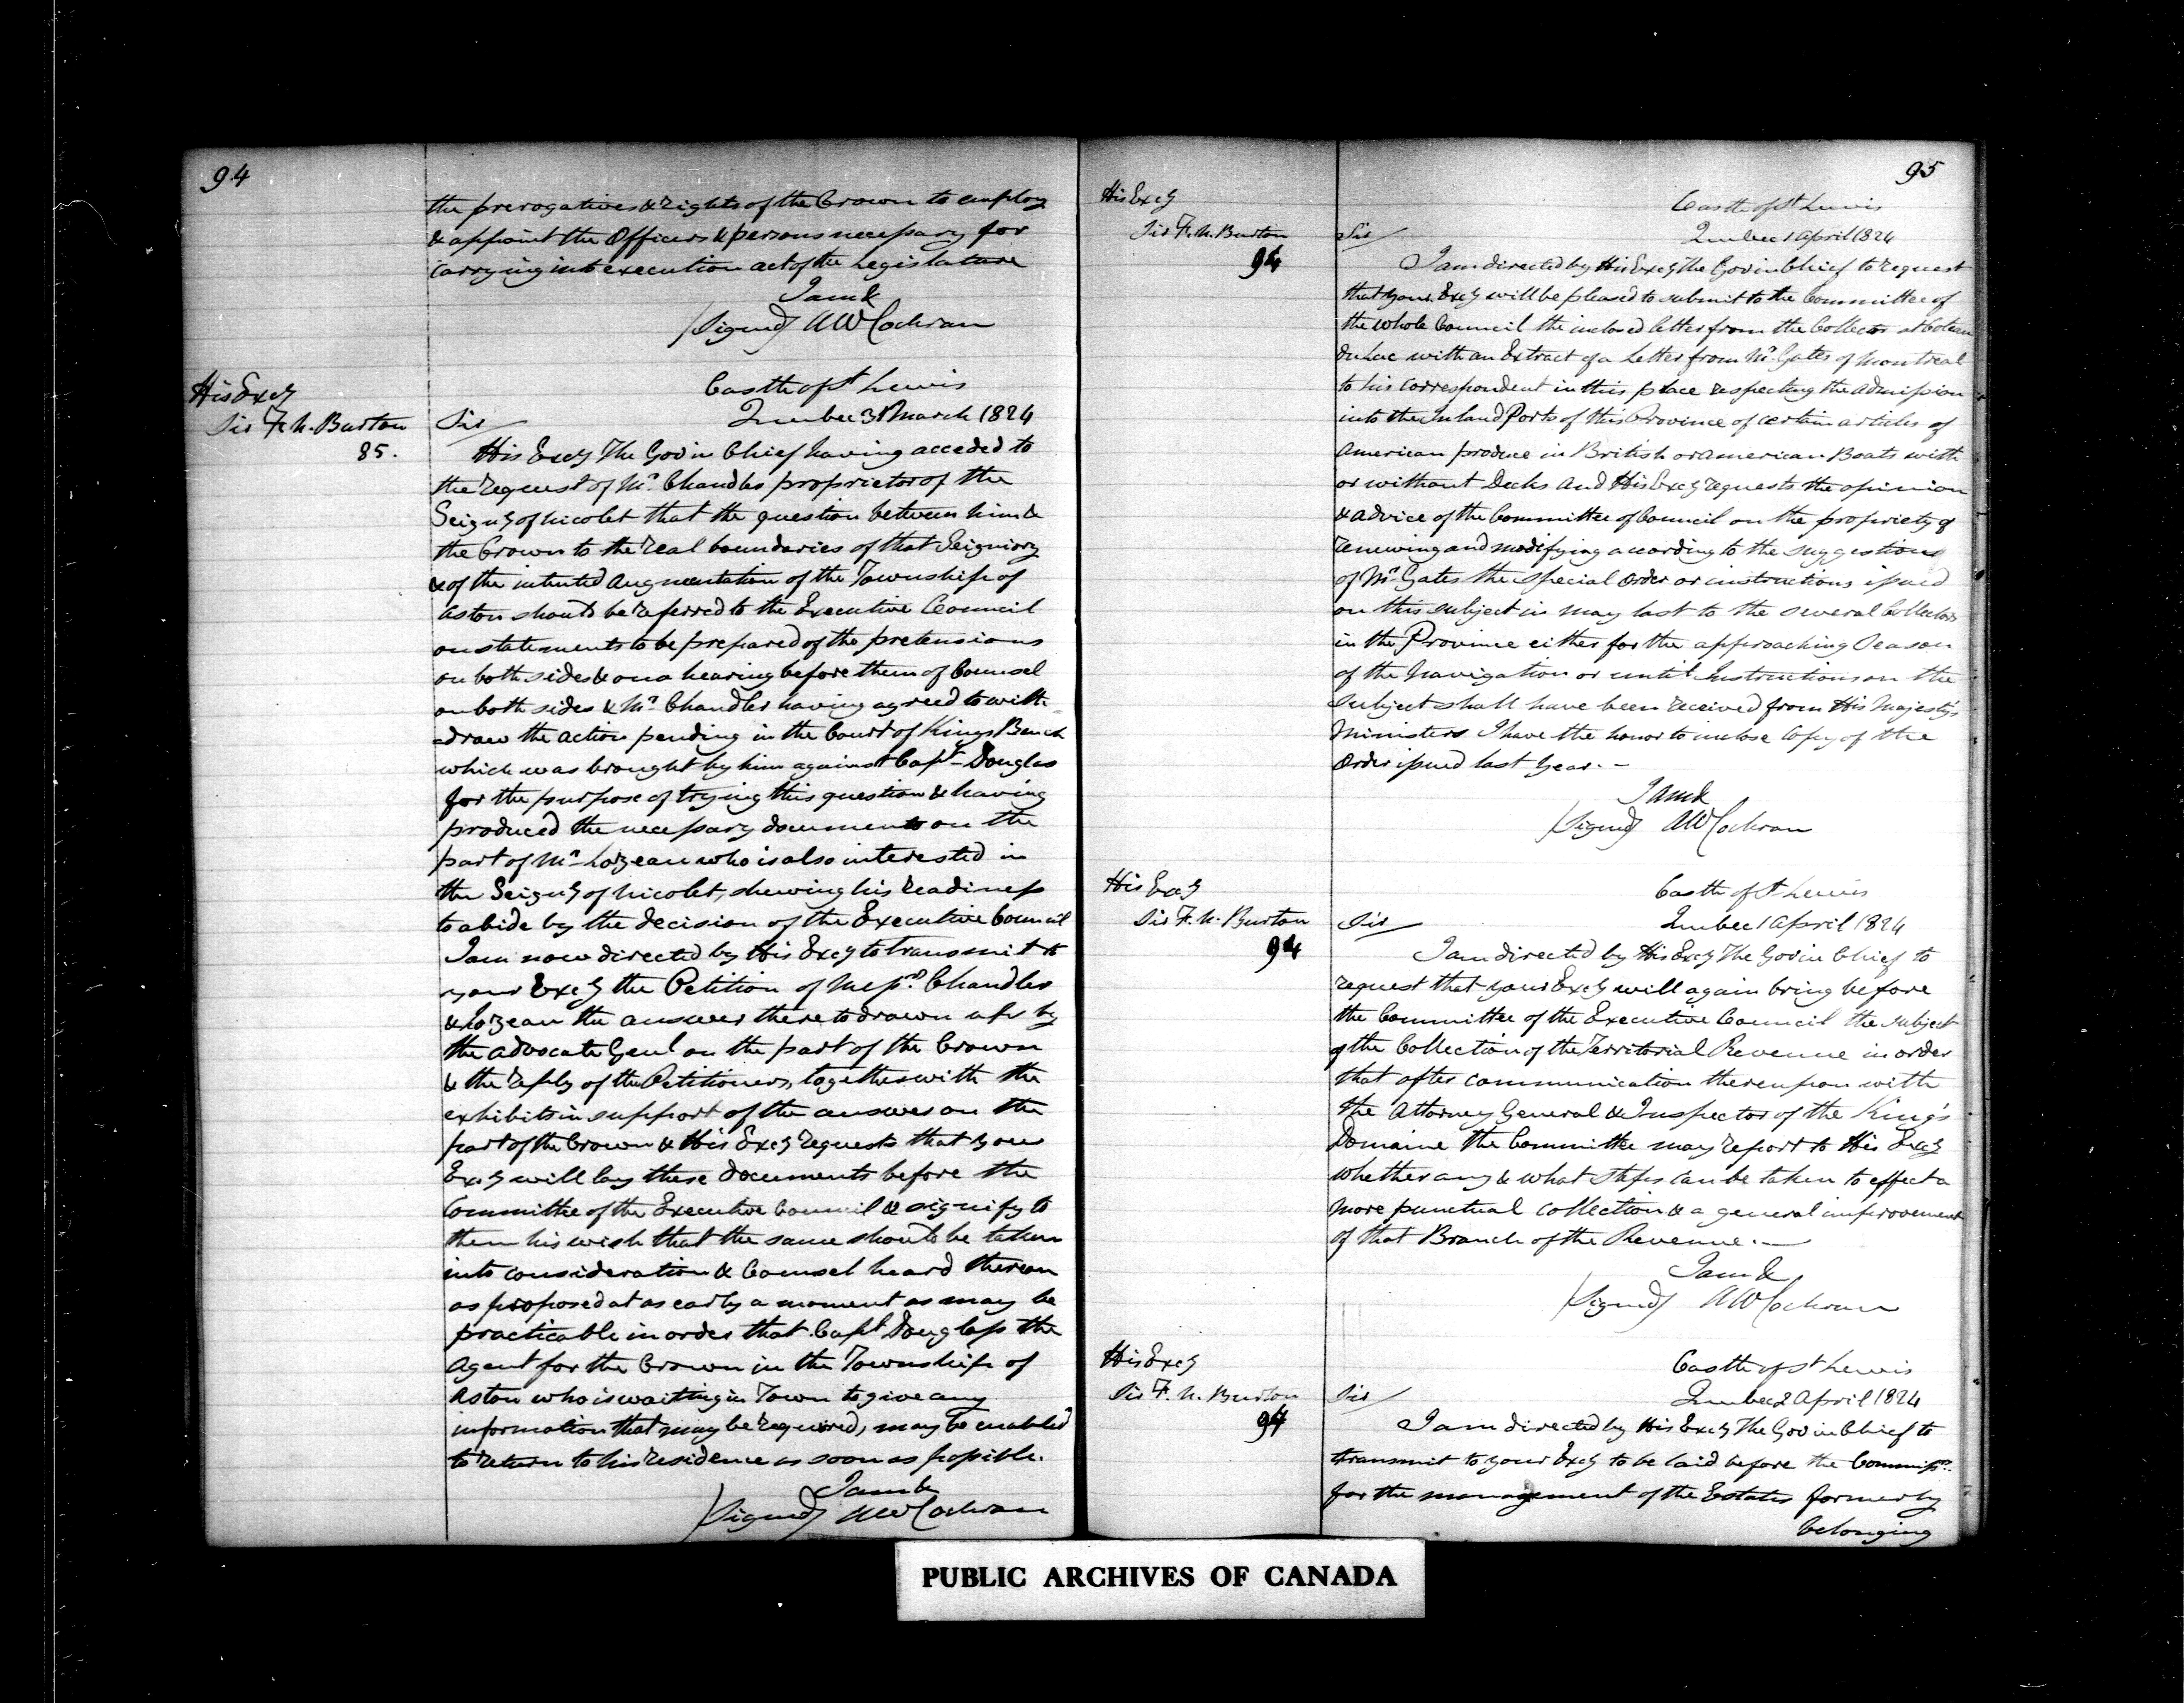 94
the prerogatives & rights of the Crown to employ
& appoint the Officers & persons necessary for
carrying into execution act of the Legislature
I am &
(Signed) AW Cochran
His Excy
Sir F. N. Burton
85.
Castle of St Lewis
Quebec 31 March 1824
Sir
His Excy The Gov in Chief having acceded to
the request of Mr. Chandler proprietor of the
Seigny of Nicolet that the question between him &
the Crown to the real boundaries of that Seigniory
& of the intented augmentation of the Township of
Aston should be referred to the Executive Council
on statements to be prepared of the pretensions
on both sides & on a hearing before them of Counsel
on both sides & Mr. Chandler having agreed to with-
-draw the action pending in the Court of Kings Bench
which was brought by him against Capt Douglas
for the purpose of trying this question & having
produced the necessary documents on the
part of Mr. Lozeau who is also interested in
the Seigny of Nicolet, shewing his readiness
to abide by the decision of the Executive Council
I am now directed by His Excy to transmit to
your Excy the Petition of Messrs. Chandler
& Lozeau the answer thereto drawn up by
the Advocate Genl on the part of the Crown
& the reply of the Petitioners, together with the
exhibits in support of the answer on the
part of the Crown & His Excy requests that your
Excy will lay these documents before the
Committee of the Executive Council & signify to
them his wish that the same should be taken
into consideration & Counsel heard thereon
as proposed at as early a moment as may be
practicable in order that Capt Douglass the
Agent for the Crown in the Township of
Aston who is waiting in Town to give any
information that may be required, may be enabled
to return to his residence as soon as possible.
I am &
(Signed) AW Cochran
95
His Excy
Sir F. N. Burton
94
Castle of St Lewis
Quebec 1 April 1824
Sir
I am directed by His Excy The Gov in Chief to request
that your Excy will be pleased to submit to the Committee of
the whole Council the inclosed letter from the Collector at Coteau
du Lac with an Extract of a Letter from Mr. Gates of Montreal
to his correspondent in this place respecting the admission
into the Inland Ports of this Province of certain articles of
American produce in British or American Boats with
or without Decks and His Excy requests the opinion
& advice of the Committee of Council on the propriety of
renewing and modifying according to the suggestions
of Mr. Gates the special order or instructions issued
on this subject in May last to the several Collectors
in the Province either for the approaching Season
of the Navigation or until Instructions on the
Subject shall have been received from His Majesty's
Ministers I have the honor to inclose Copy of the
Order issued last year. -
I am &
(Signed) AW Cochran
His Excy
Sir F. N. Burton
94
Castle of St Lewis
Quebec 1 April 1824
Sir
I am directed by His Excy The Gov in Chief to
request that your Excy will again bring before
the Committee of the Executive Council the subject
of the Collection of the Territorial Revenue in order
that after communication thereupon with
the Attorney General & Inspector of the King's
Domaine the Committee may report to His Excy
whether any & what steps can be taken to effect a
more punctual collection & a general improvement
of that Branch of the Revenue. -
I am &
(Signed) AW Cochran
His Excy
Sir F. N. Burton
94
Castle of St Lewis
Quebec 2 April 1824
Sir
I am directed by His Excy The Gov in Chief to
transmit to your Excy to be laid before the Commissrs.
for the management of the Estates formerly
belonging
PUBLIC ARCHIVES OF CANADA